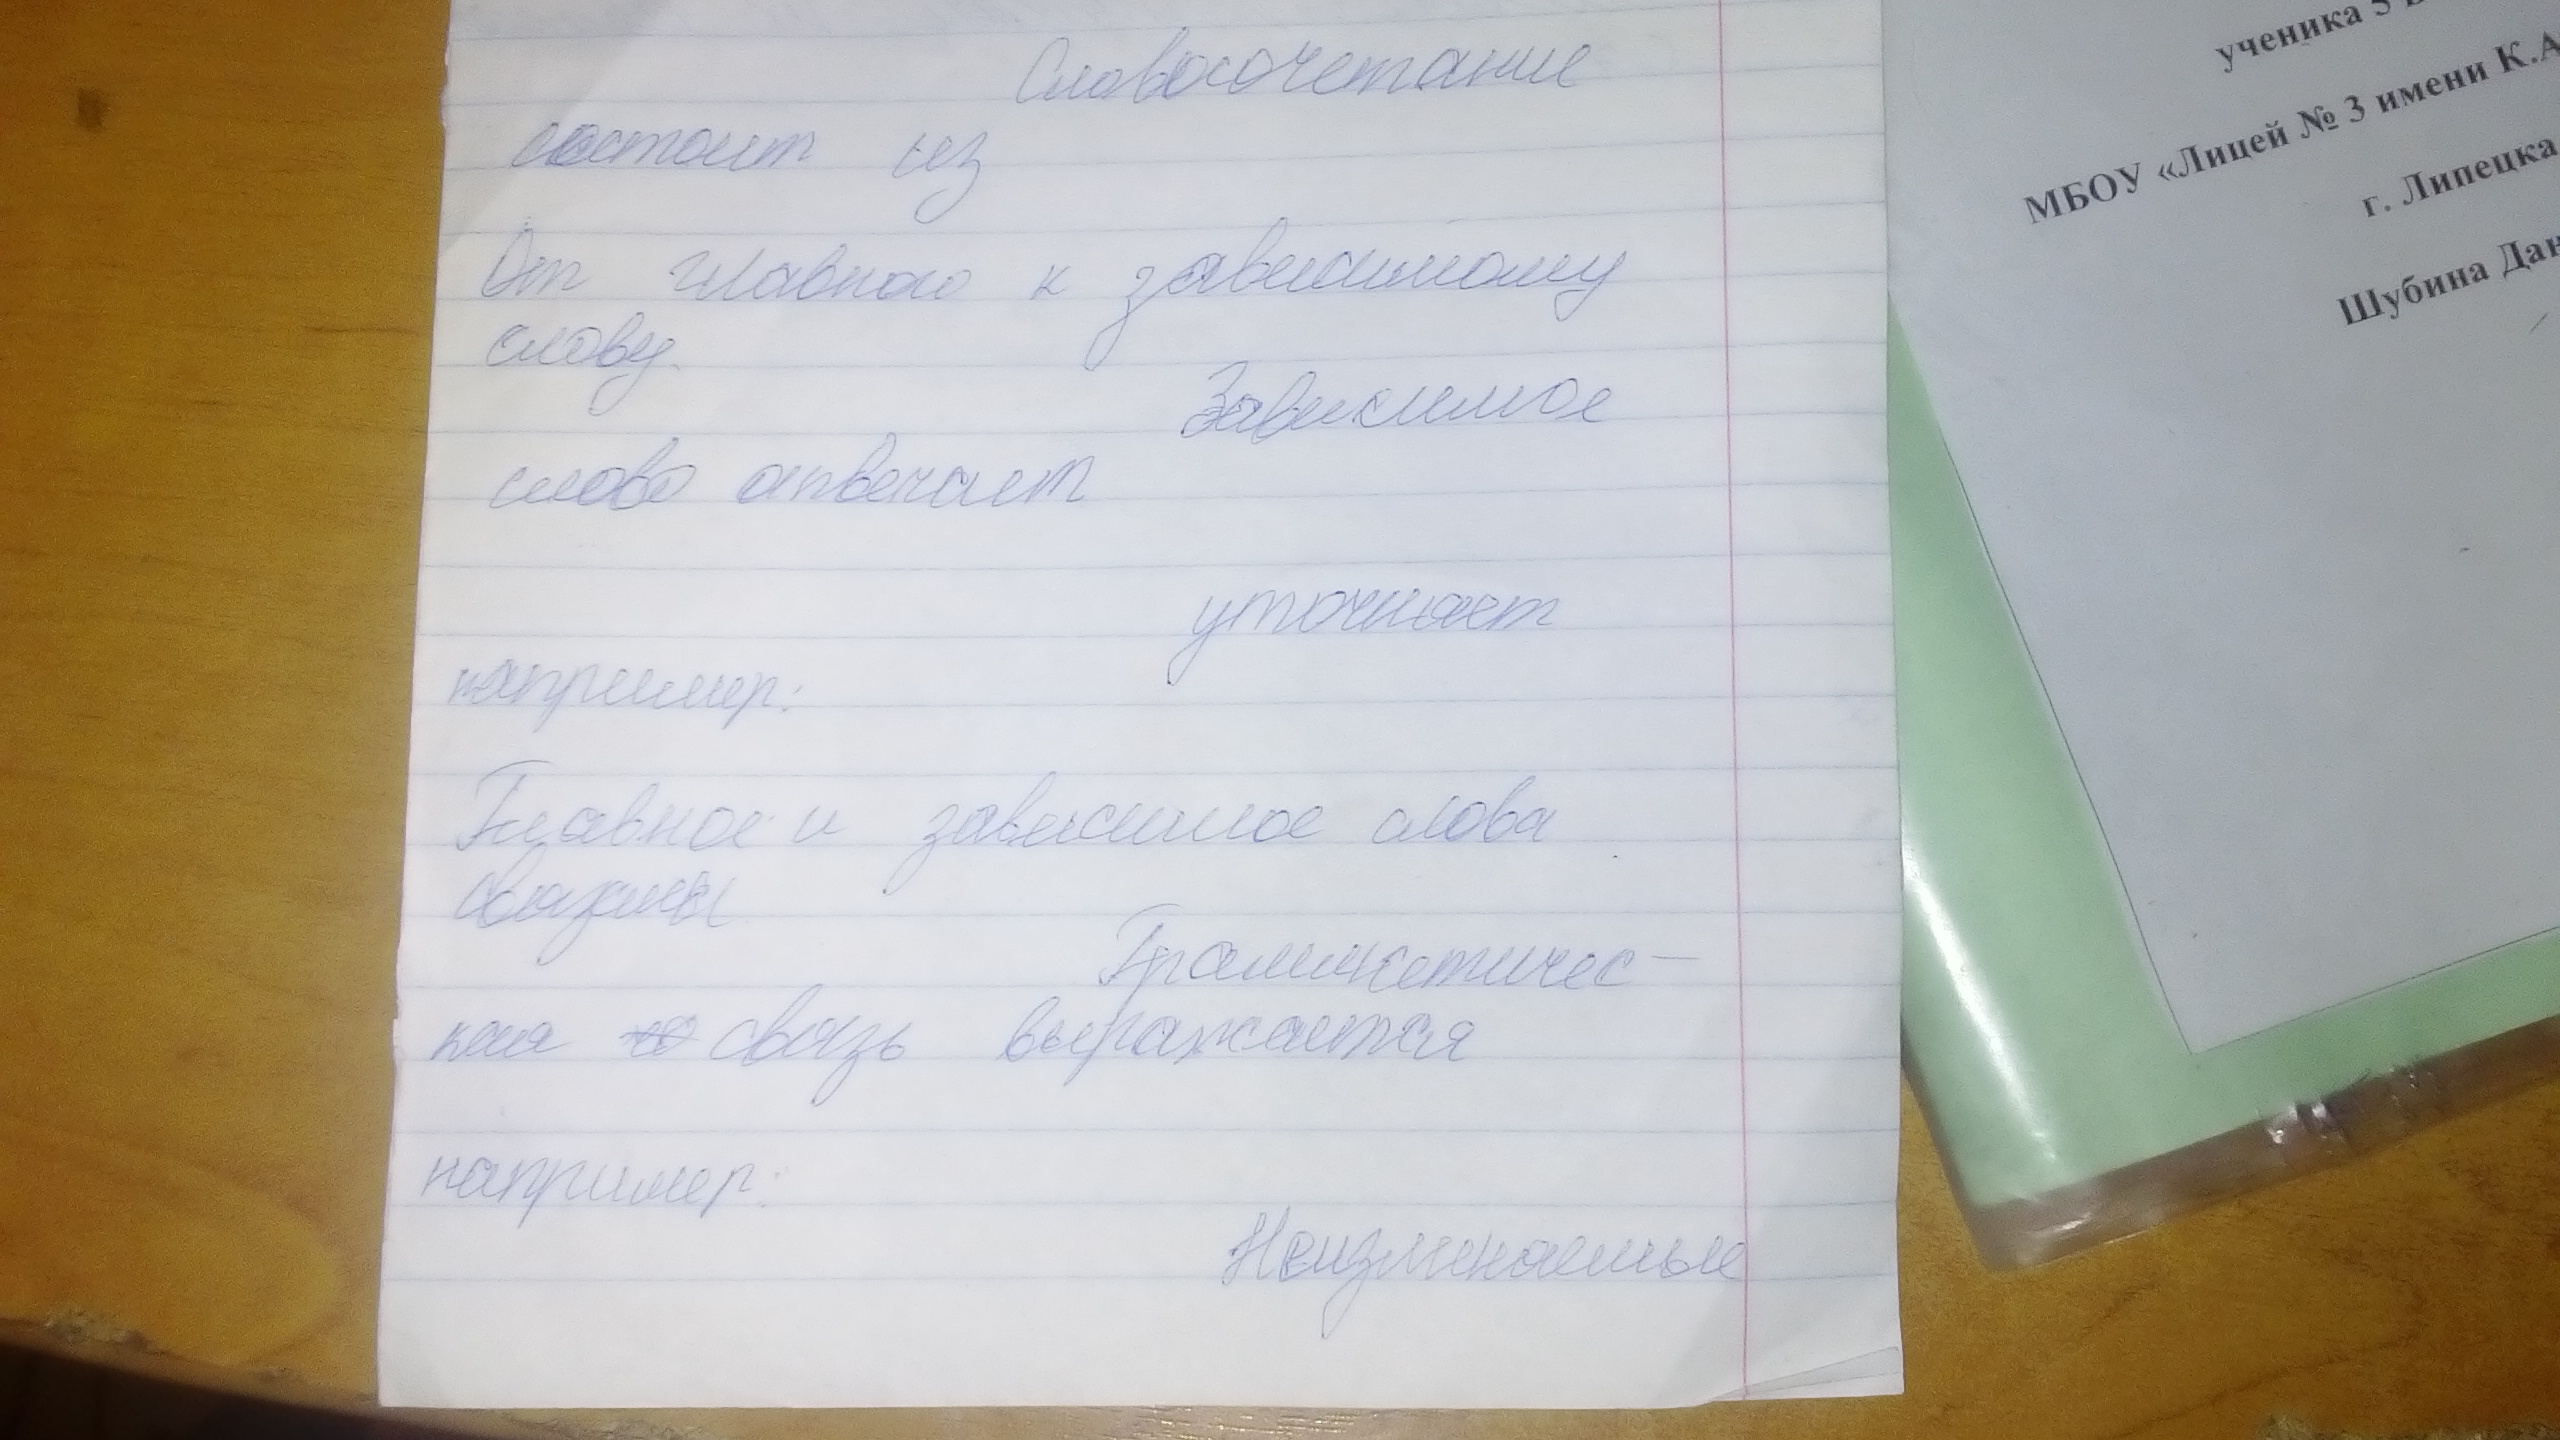 Словосочетание
состоит из
От главного к зависимому
слову.
Зависимое
слово отвечает
уточняет
например:
Главное и зависимое слова
связаны
Грамматичес-
кая связь выражается
например:
Неизменяемые
ученика 5
МБОУ «Лицей № 3 имени К.А
г. Липецка
Шубина Дан